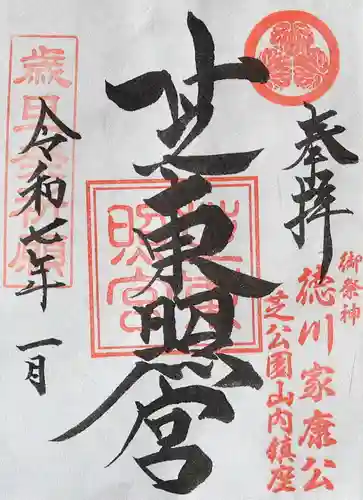 奉拝
御祭神
徳川家康公
芝公園山内鎮座
芝東照宮
芝東照宮
歳旦祭祈願
令和七年
一月